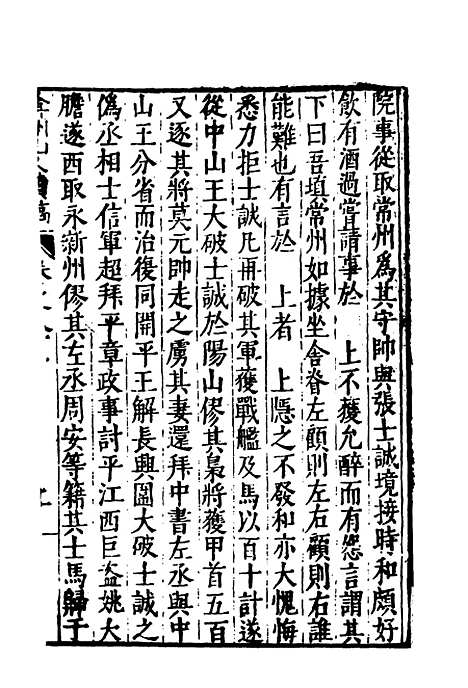 院事從取常州爲其守帥與張士誠境接時和頗好
飲有酒過嘗請事於　上不獲允醉而有怨言謂其
下曰吾填常州如據坐舍脊左顧則左右顧則右誰
能難也有言於　上者　上隱之不發和亦大愧悔
悉力拒士誠凡再破其軍獲戰艦及馬以百十計遂
從中山王大破士誠於陽山僇其梟將獲甲首五百
又逐其將莫元帥走之虜其妻還拜中書左丞與中
山王分省而治復同開平王解長興圍大破士誠之
僞丞相士信軍超拜平章政事討平江西巨盜姚大
膽遂西取永新州僇其左丞周安等籍其士馬歸于